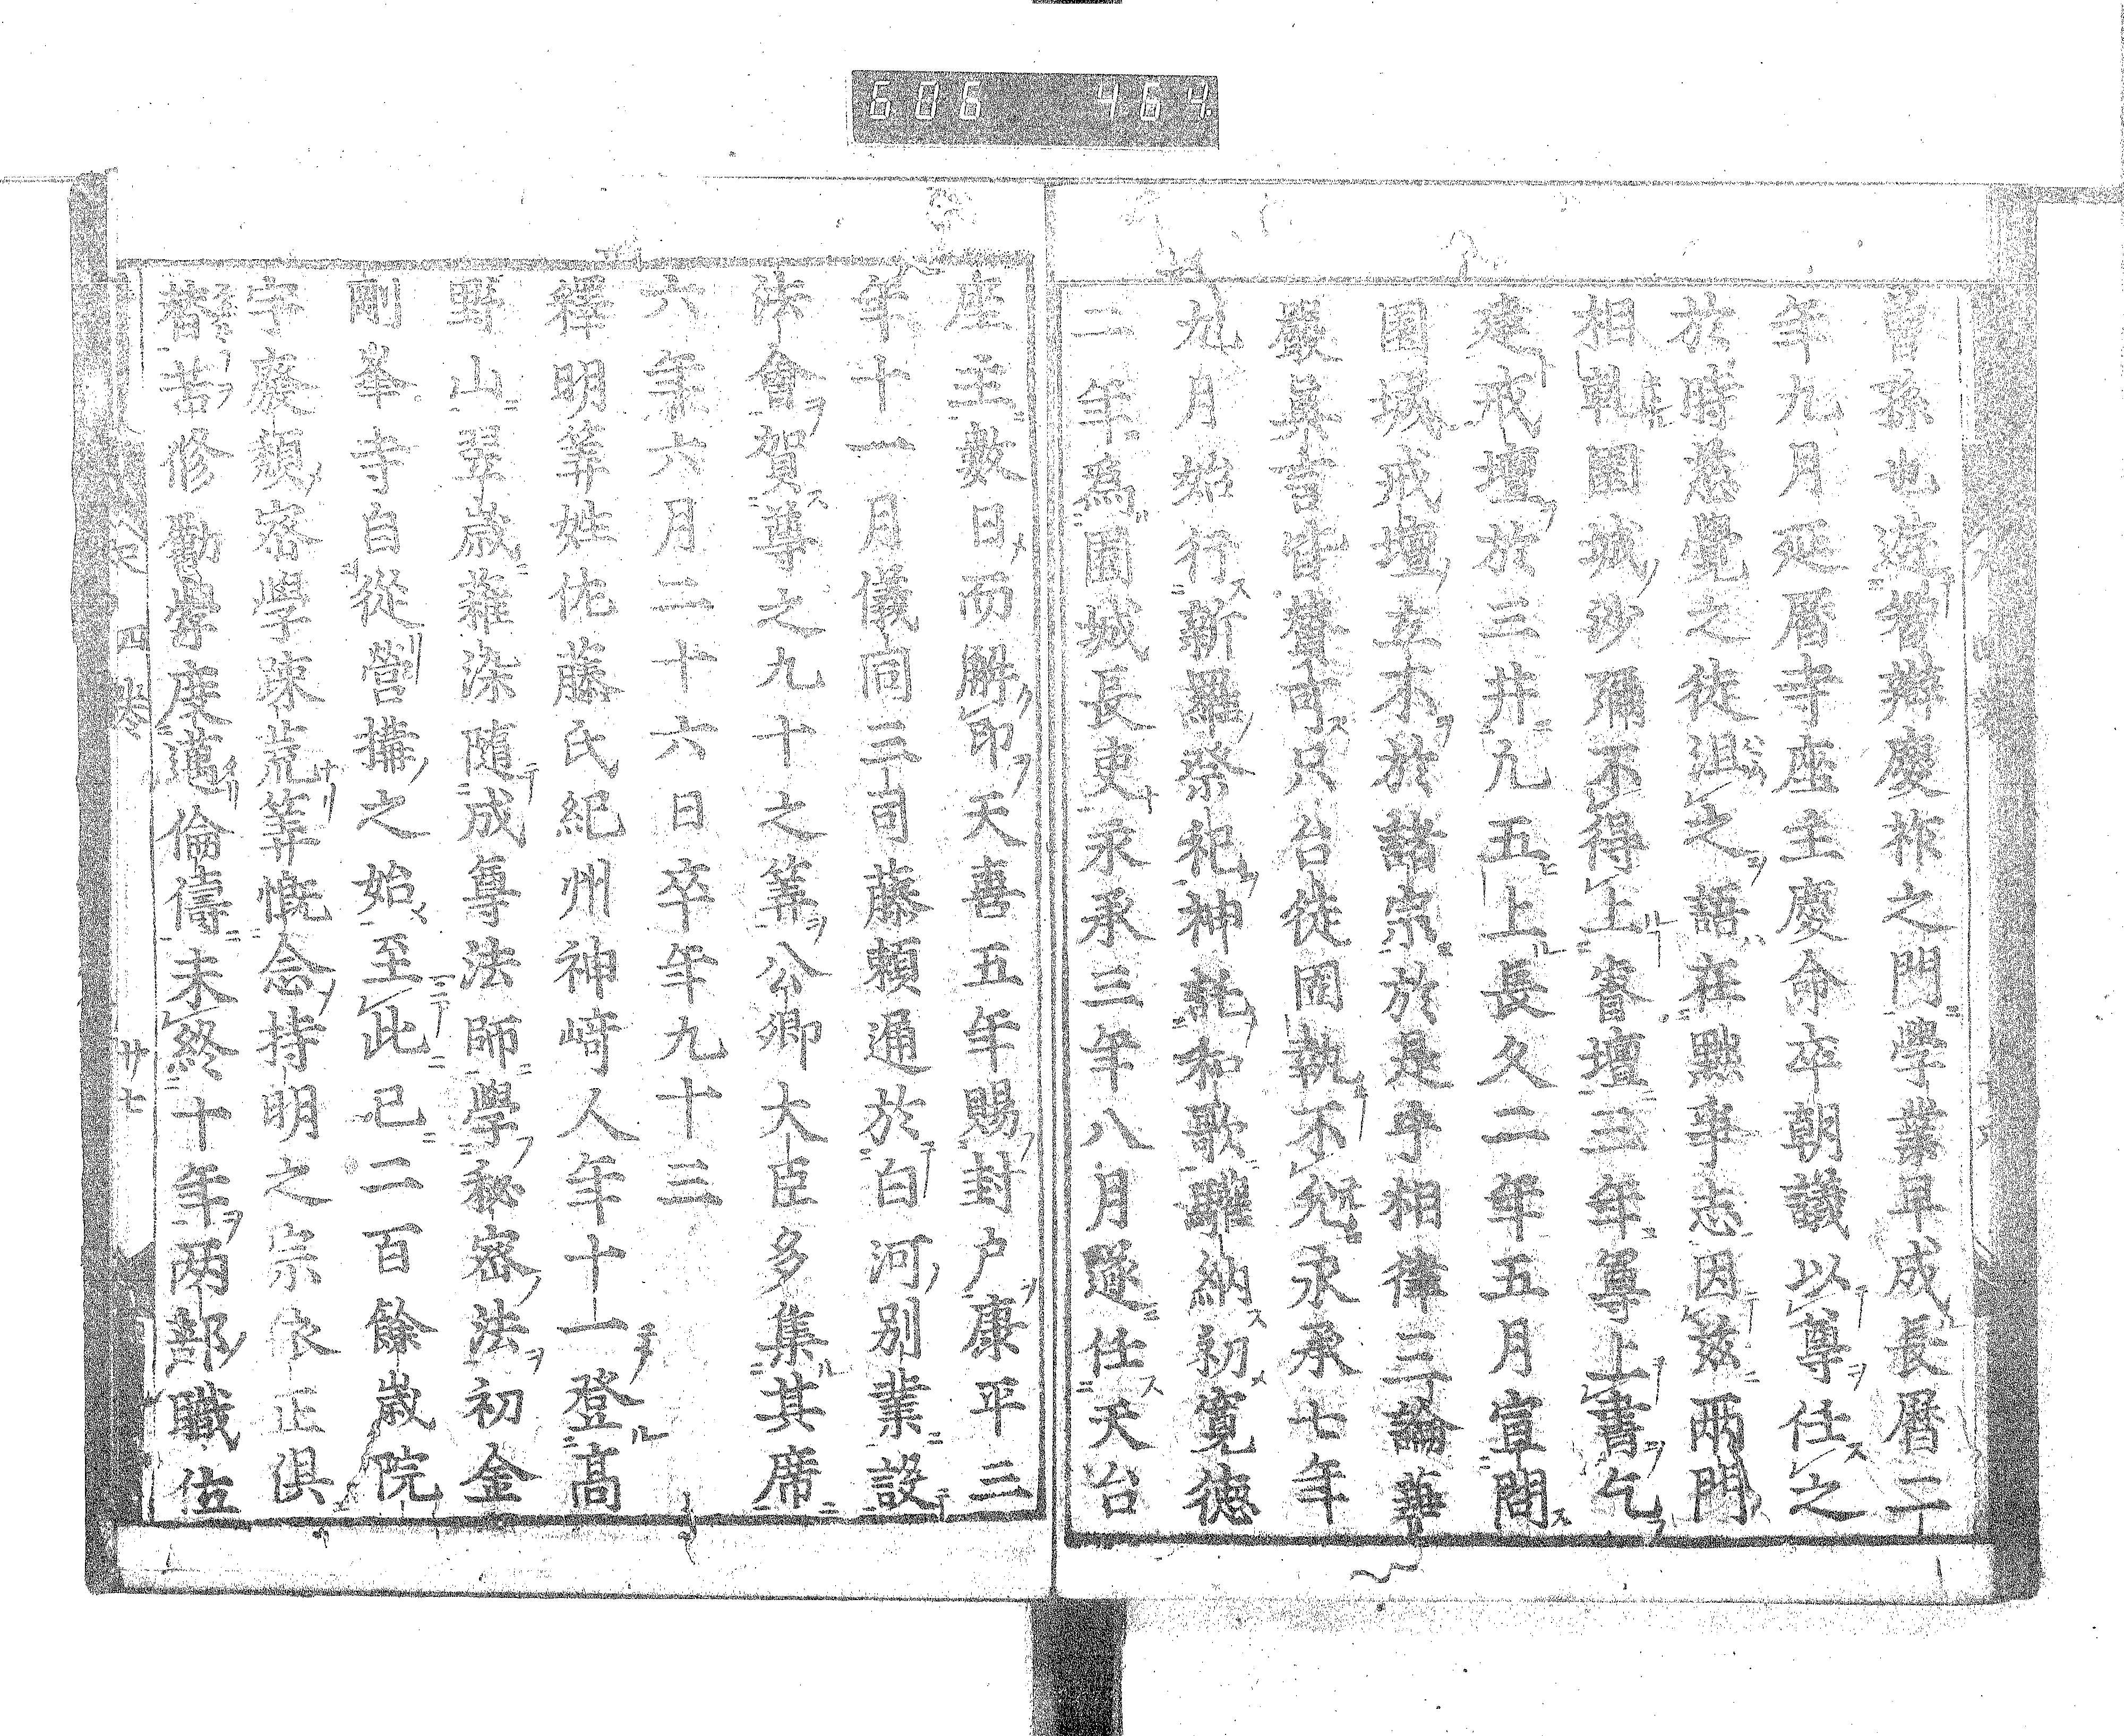 686 464
曾孫也遊智辯慶祚之門學業早成長曆二
年九月延曆寺座主慶命卒朝議以尊任之
於時慈覺之徒沮之語在黜爭志因茲兩門
相軋園城沙彌不得上睿壇三年尊上書乞
建戒壇於三井凡五上長久二年五月宣問
園城戒壇立不於諸宗於是乎相律三論華
嚴眞言皆贊可只台徒固執不允永承七年
九月始行新羅祭祀神託和歌驩納初寬德
二年爲園城長吏永承三年八月遂任天台
座主數日而解印天喜五年賜封戶康平三
年十一月儀同三司藤賴通於白河別業設
法會賀尊之九十之筭公卿大臣多集其席
六年六月二十六日卒年九十三
釋明筭姓佐藤氏紀州神﨑人年十一登高
野山翠歲薙染隨成尊法師學秘密法初金
剛峯寺自從營搆之始至此已二百餘歲院
宇廢頹密學疎荒筭慨念持明之宗依正俱
替苦修勸學度邁倫儔未終十年兩部職位
四卷 廿七